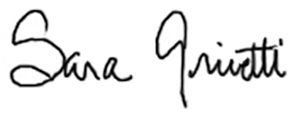 Sara Grivetti